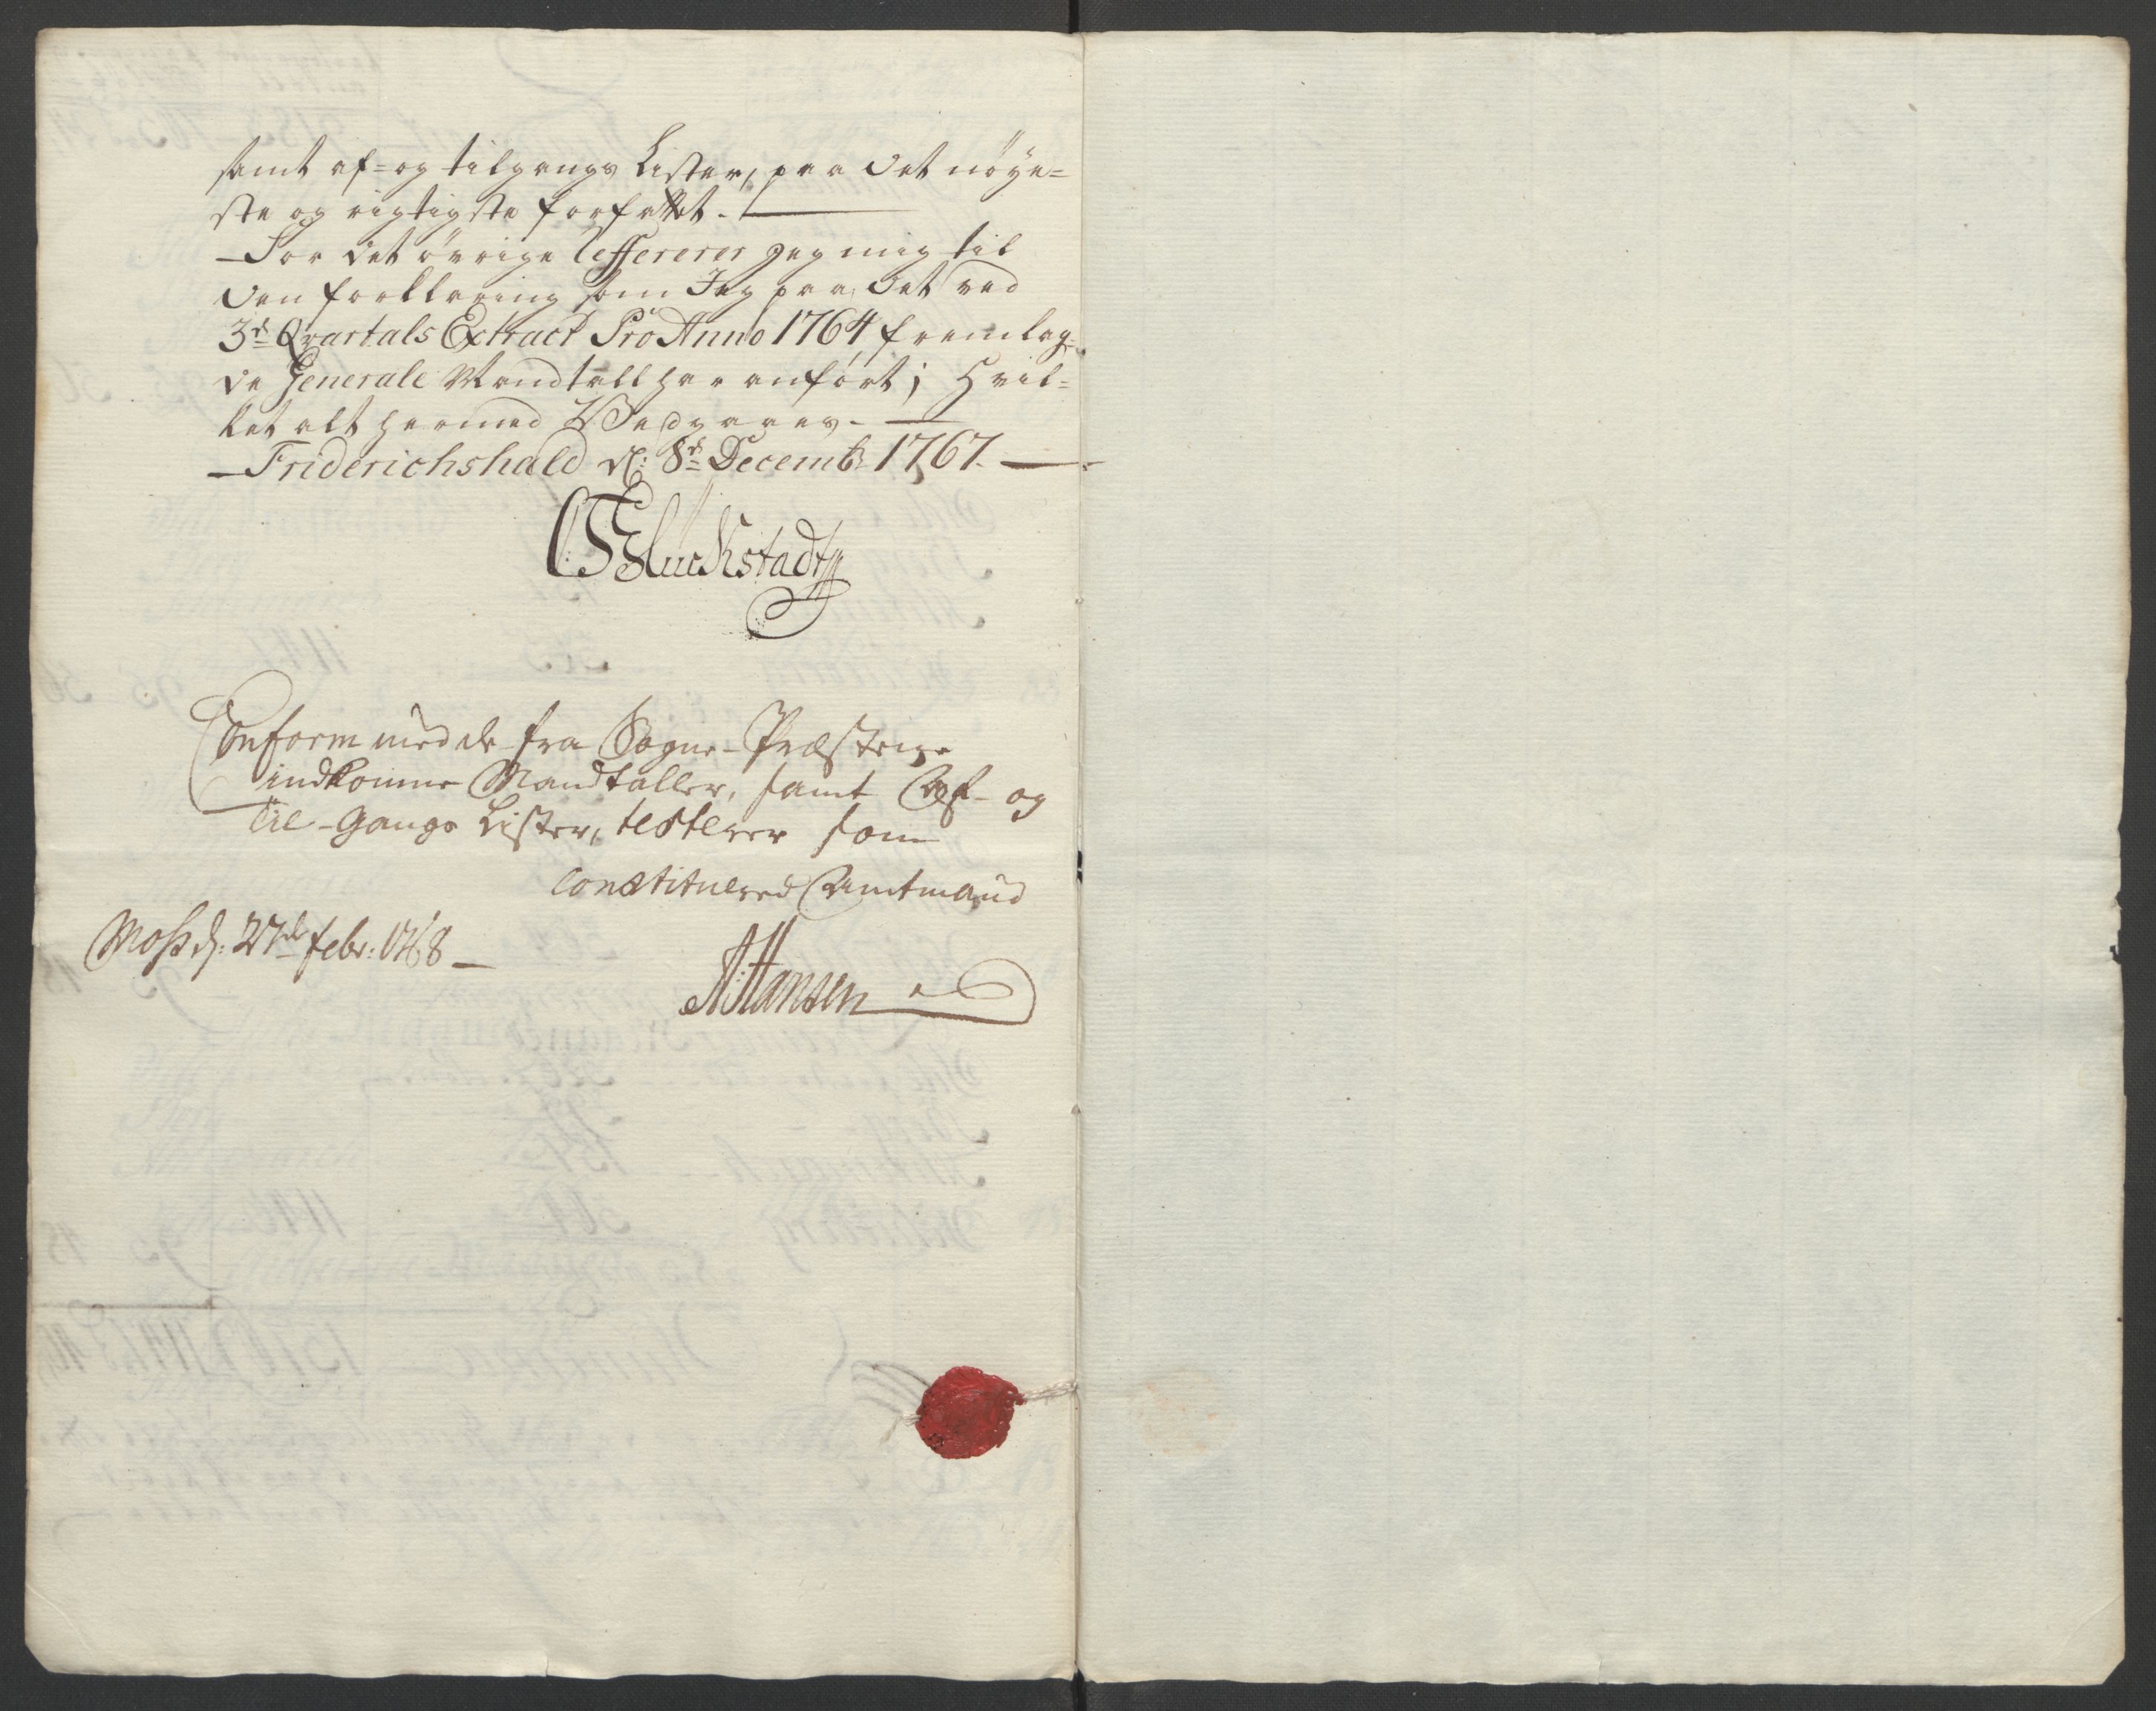 samt af- og tilgangs Lister, paa det nøye=
ste og rigtigste forfattet. —
— For det øvrige Refererer jeg mig til
den forklaring som Jeg paa det ved
3de Qvartals Extract Pro Anno 1764 fremlag=
de Generale Mandtall har anført; Hvil=
ket alt hermed Vedgaaes. —
— Friderichshald d: 8de Decembr 1767. —
CGluckstadt
Conform med de fra Sogne-Præsterne
indkomne Mandtaller, samt Af- og
Til-Gangs Lister, testerer som
Constituered Amtmand
Moss d: 27de Febr: 1768 —
NHansen